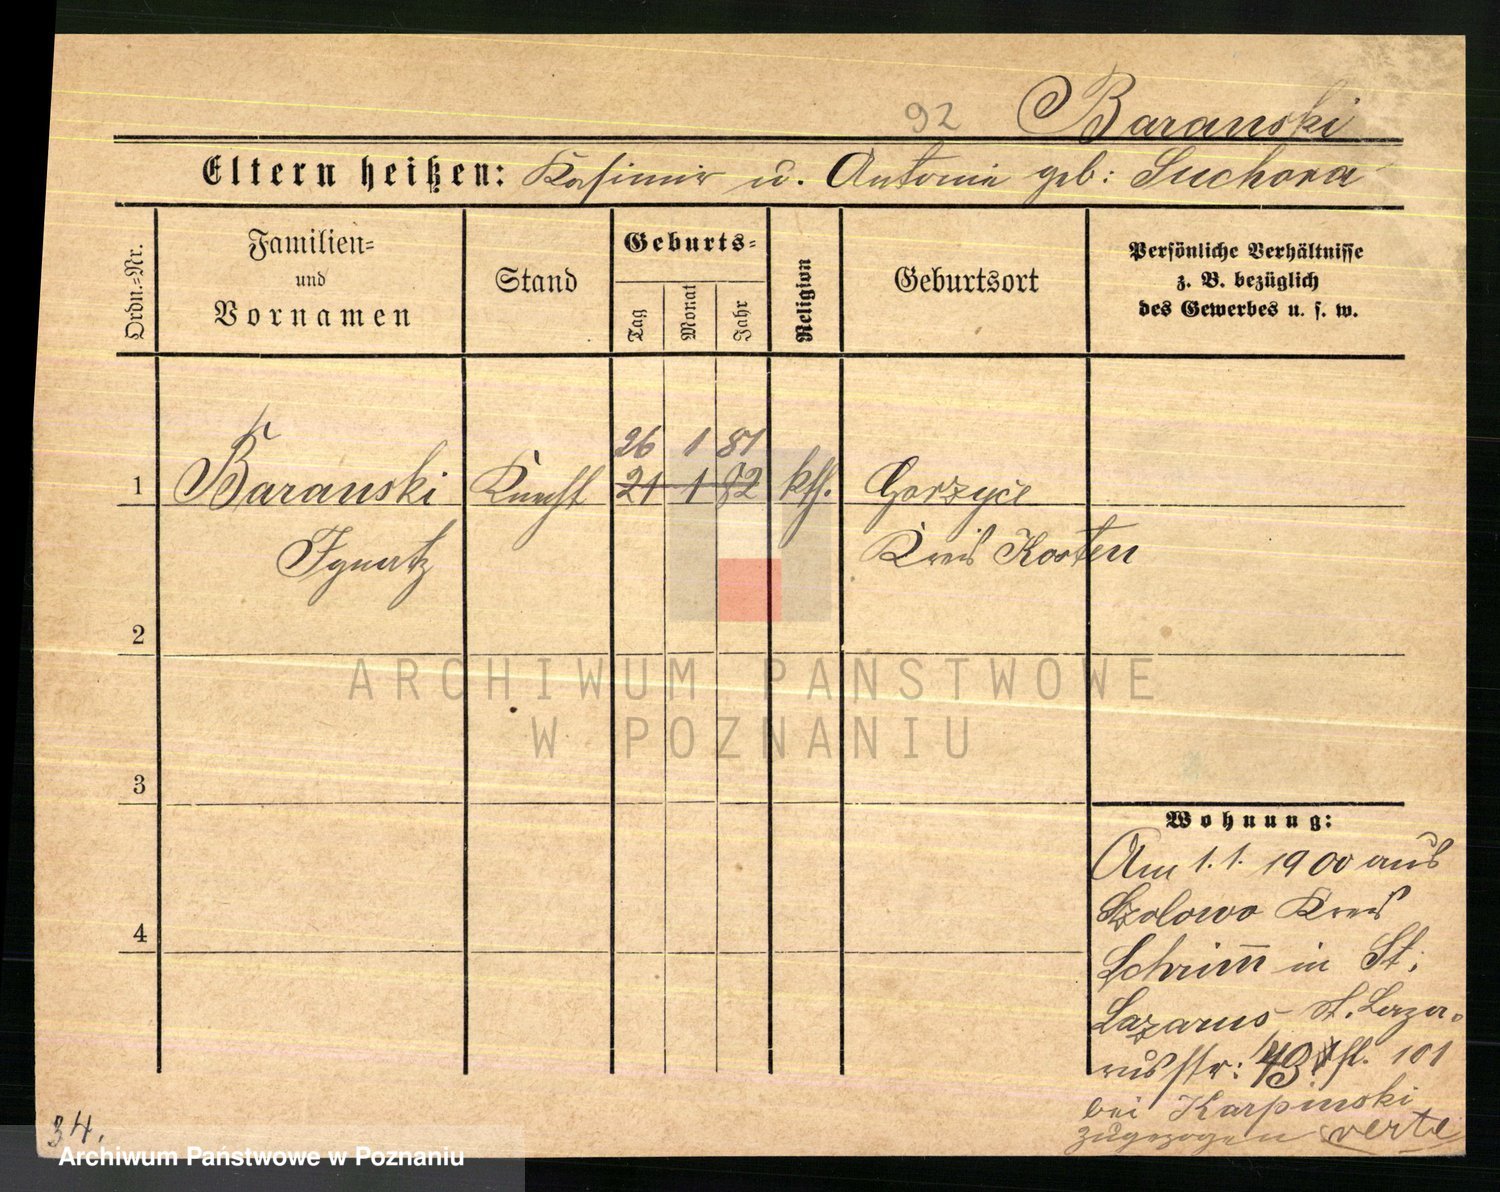 92 Baranski
Eltern heißen: Kasimir u. Antonie geb: Suchora
Ordn.=Nr.
Familien=
und
Vornamen
Stand
Geburts=
Tag
Monat
Jahr
Religion
Geburtsort
Persönliche Verhältnisse
z. B. bezüglich
des Gewerbes u. s. w.
26 1 81
1 Baranski Knecht 21 1 82 kth. Gorzyce
Ignatz Kreis Kosten
2
ARCHIWUM PAŃSTWOWE
W POZNANIU
3
4
Wohnung:
Am 1.1. 1900 aus
Kreis
Schrimm in St.
Lazarus St. Laza-
russtr: 43 101
bei Karpinski
zugezogen verte
34.
Archiwum Państwowe w Poznaniu